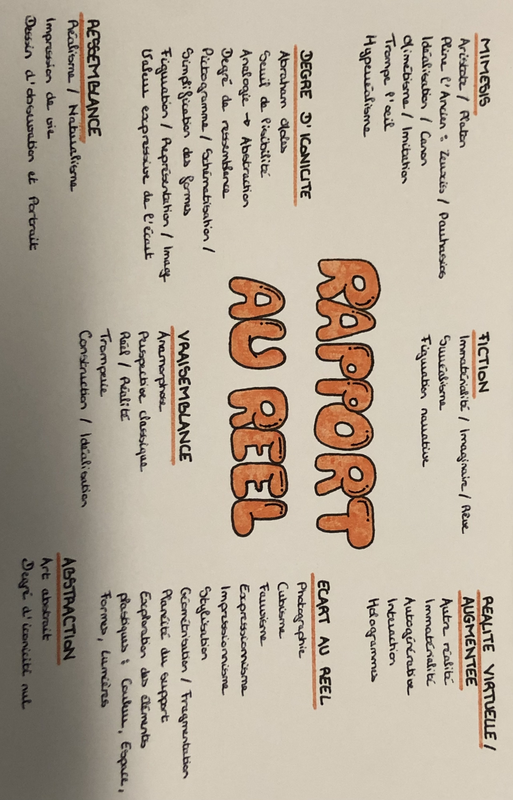 MIMESIS
Aristote / Platon
Pline l'Ancien : Zeuxis / Parrhasios
Idéalisation / Canon
Mimétisme / Imitation
Trompe l'œil
Hyperréalisme
FICTION
Immatérialité / Imaginaire / Rêve
Surréalisme
Figuration narrative
REALITE VIRTUELLE /
AUGMENTEE
Autre réalité
Immatérialité
Autogénérative
Interaction
Hologrammes
DEGRE D'ICONICITE
Abraham Moles
Seuil de lisibilité
Analogie → Abstraction
Degré de ressemblance
Pictogramme / Schématisation /
Simplification des formes
Figuration / Représentation / Image
Valeur expressive de l'écart
RAPPORT
AU REEL
ECART AU REEL
Photographie
Cubisme
Fauvisme
Expressionnisme
Impressionnisme
Stylisation
Géométrisation / Fragmentation
Planéité du support
Exploration des éléments
plastiques : Couleur, Espace,
Formes, Lumières
RESSEMBLANCE
Réalisme / Naturalisme
Impression de vie
Dessin d'observation et Portrait
VRAISEMBLANCE
Anamorphose
Perspective classique
Réel / Réalité
Tromperie
Construction / Idéalisation
ABSTRACTION
Art abstrait
Degré d'iconicité nul